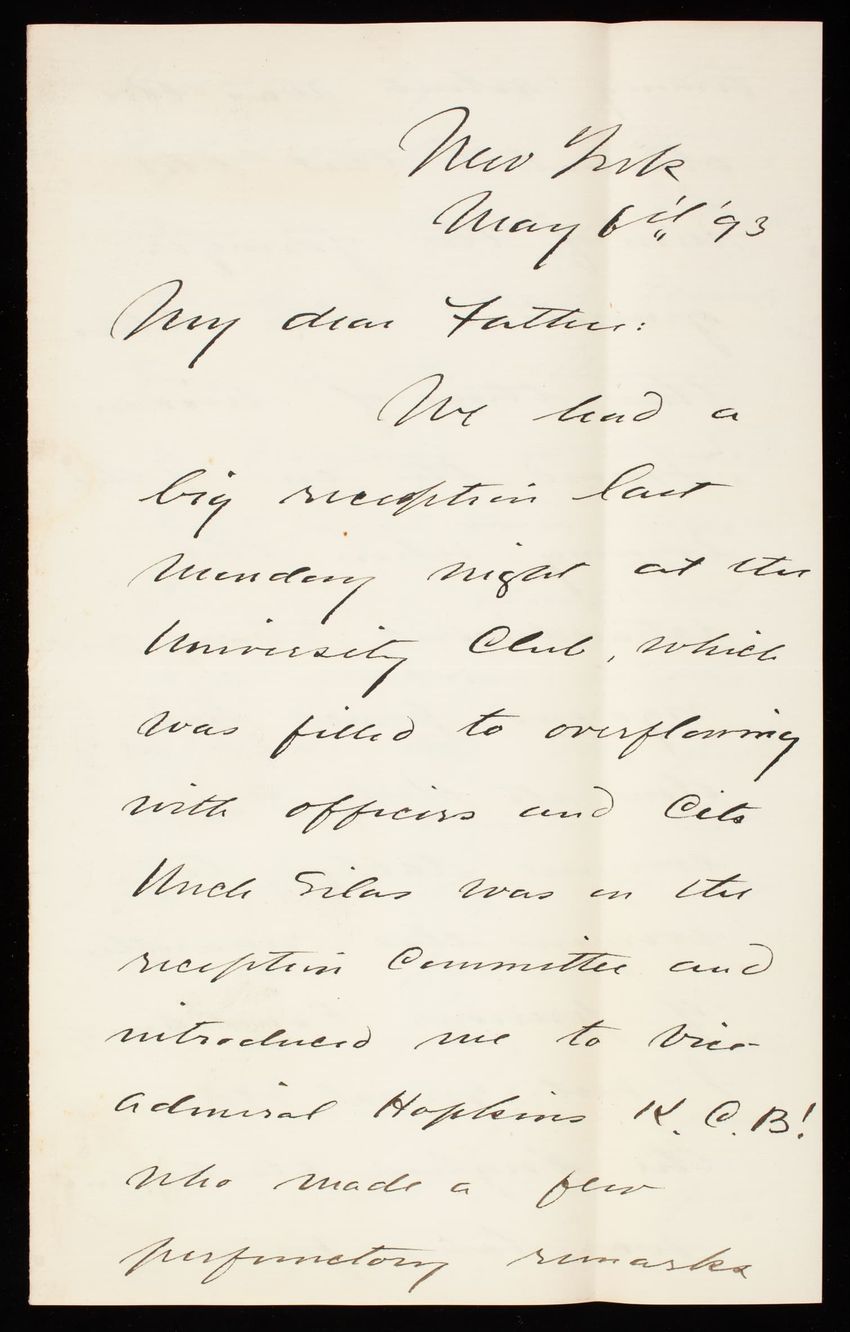 New York
May 6th '93
My dear Father:
We had a
big reception last
Monday night at the
University Club, which
was filled to overflowing
with officers and Cits
Uncle Silas was on the
reception Committee and
introduced me to Vice-
admiral Hopkins K.C.B!
who made a few
perfunctory remarks